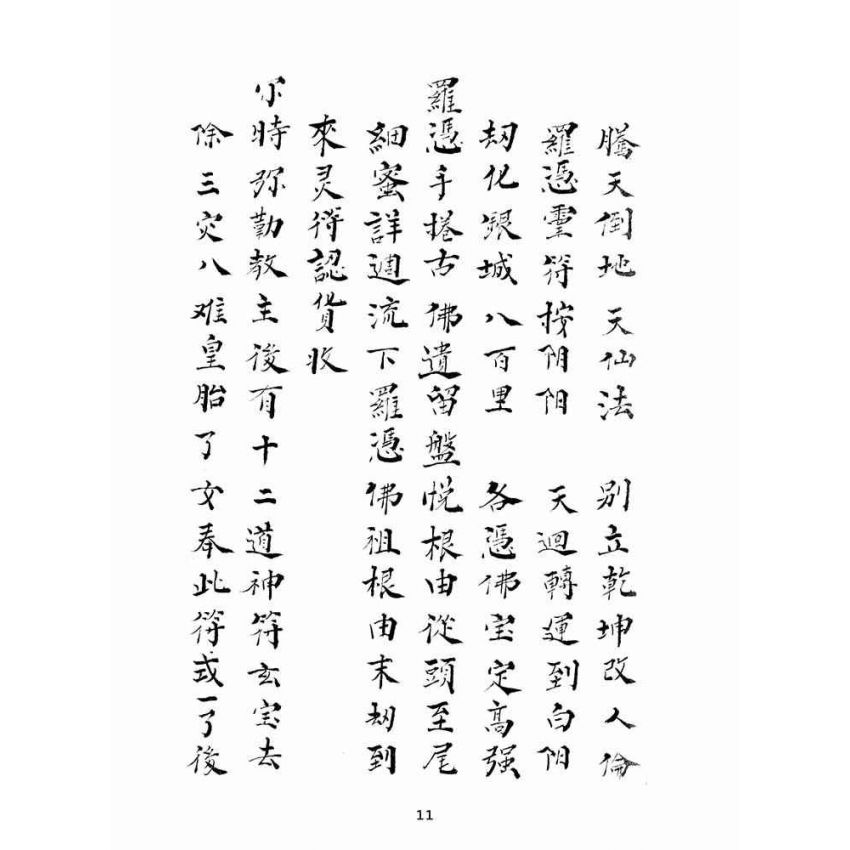 騰天倒地 天仙法 別立乾坤改人倫
羅憑靈符按阴阳 天迴轉運到白阳
劫化銀城八百里 各憑佛宝定高强
羅憑手捲古佛遺留盤悦根由從頭至尾
細蜜詳週流下羅憑佛祖根由末劫到
來灵符認貨收
尔時弥勤教主後有十二道神符玄宝去
除三灾八难皇胎了女奉此符式一了後
11